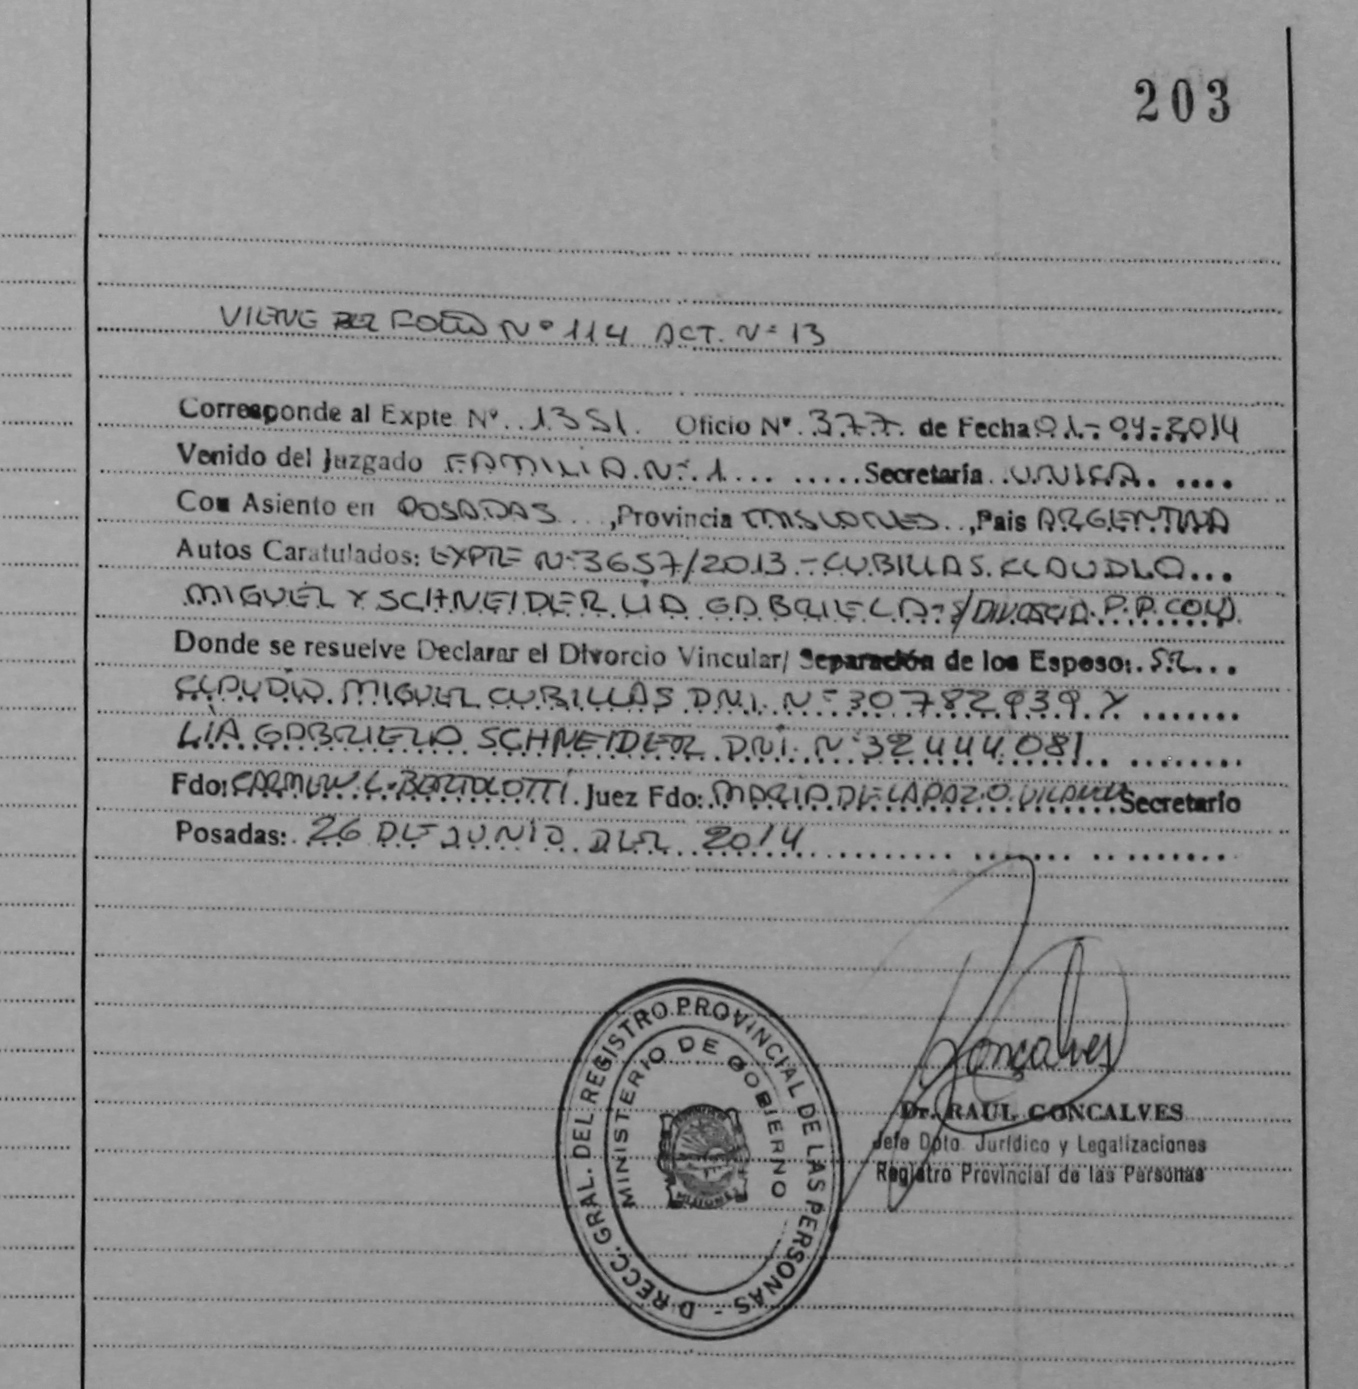 203
VIENE DEL FOLIO Nº 114 ACT. Nº 13
Corresponde al Expte Nº. 1351. Oficio Nº. 377. de Fecha 01-04-2014
Venido del Juzgado FAMILIA Nº 1 Secretaría UNICA.
Con Asiento en POSADAS, Provincia MISIONES, Pais ARGENTINA
Autos Caratulados: EXPTE Nº 3657/2013 - CUBILLAS CLAUDIO
MIGUEL Y SCHNEIDER LIA GABRIELA S/ DIVORCIO P.P. CONJ.
Donde se resuelve Declarar el Divorcio Vincular/ Separación de los Esposo: SR
CLAUDIO MIGUEL CUBILLAS D.N.I. Nº 30782939 Y
LÍA GABRIELA SCHNEIDER DNI. Nº 32444081
Fdo: CARMEN L. BARTOLOTTI. Juez Fdo: MARIA DE LA PAZ O. Secretario
Posadas: 26 DE JUNIO DEL 2014
Goncalves
Dr. RAUL GONCALVES
Jefe Dpto. Jurídico y Legalizaciones
Registro Provincial de las Personas
DIRECC. GRAL. DEL REGISTRO PROVINCIAL DE LAS PERSONAS -
MINISTERIO DE GOBIERNO
MISIONES